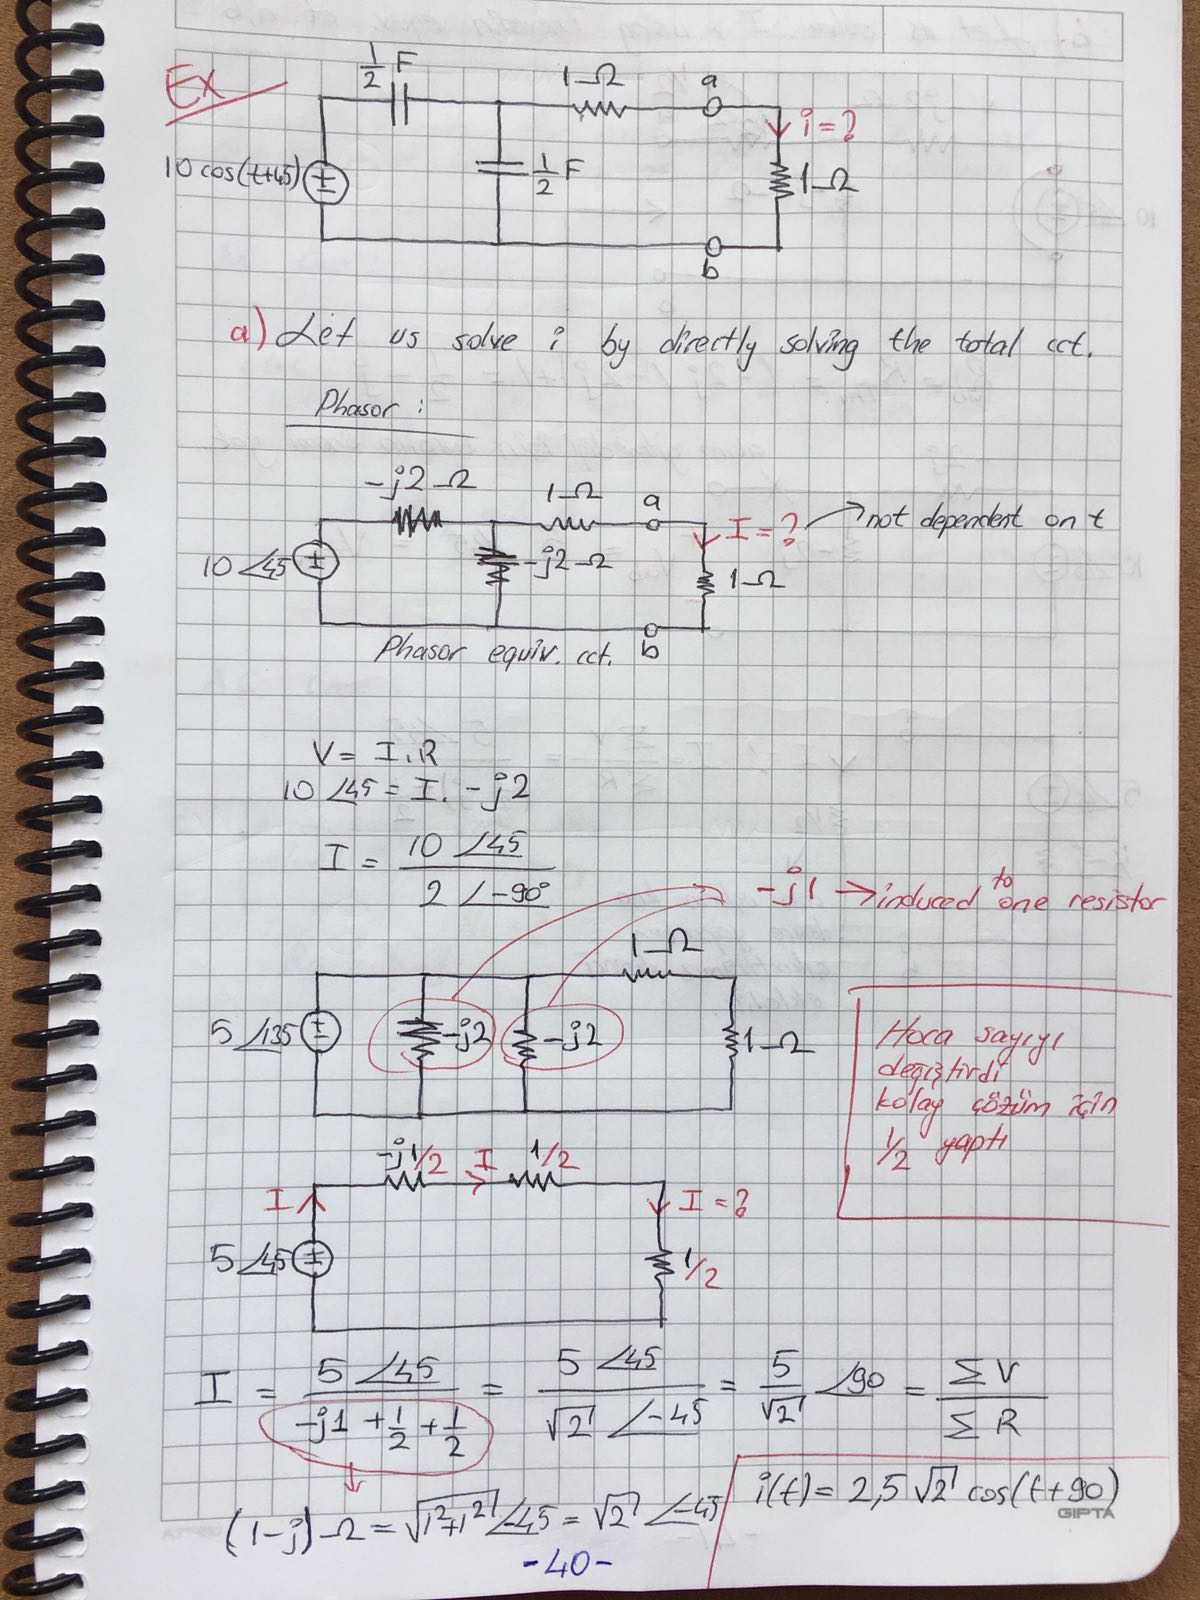 Ex
1/2 F
1Ω
a
i=?
10 cos(t+45)
1/2 F
1Ω
b
a) Let us solve i by directly solving the total cct.
Phasor :
-j2Ω
1Ω
a
I=? → not dependent on t
10 ∠45
-j2Ω
1Ω
b
Phasor equiv. cct.
V = I.R
10 ∠45 = I. -j2
I = 10 ∠45 / 2 ∠-90°
-j1 → induced to one resistor
1Ω
5 ∠135
-j2
-j2
1Ω
Hoca sayıyı
değiştirdi
kolay çözüm için
1/2 yaptı
-j1/2
I
1/2
I
I=?
5 ∠45
1/2
I = 5 ∠45 / -j1 + 1/2 + 1/2 = 5 ∠45 / √2 ∠-45 = 5/√2 ∠90 = ΣV / ΣR
(1-j)Ω = √1²+1² ∠-45 = √2 ∠-45
i(t) = 2,5 √2 cos(t+90)
GIPTA
-40-